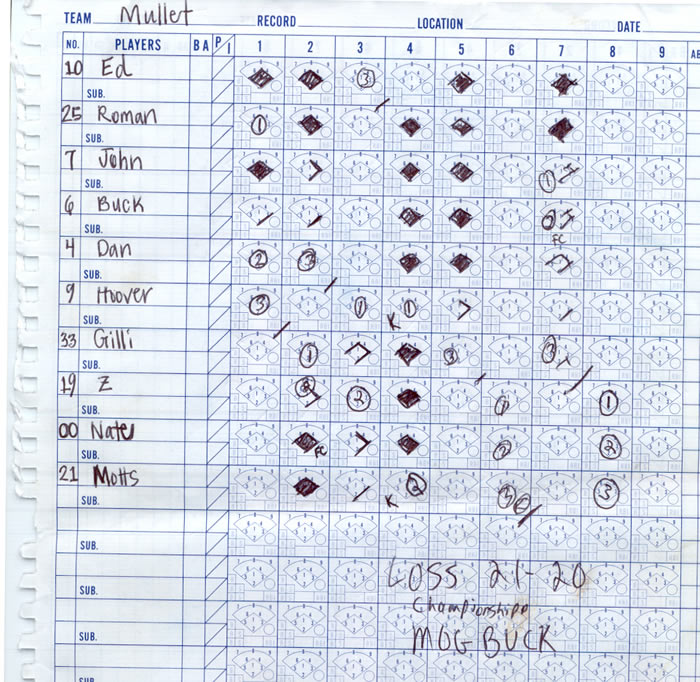 TEAM Mullet RECORD LOCATION DATE
NO. PLAYERS B A P I 1 2 3 4 5 6 7 8 9 AB
10 Ed 3
SUB.
25 Roman 1
SUB.
7 John 1
SUB.
6 Buck
SUB. FC
4 Dan 2 3
SUB.
9 Hoover 3 1 1
SUB. K
33 Gilli 1 3 3
SUB.
19 Z 2 2 1 1
SUB.
00 Nate FC 2 2
SUB.
21 Motts 2 3 3
SUB. K
SUB.
LOSS 21-20
SUB.
Championship
SUB.
MOG BUCK
SUB.